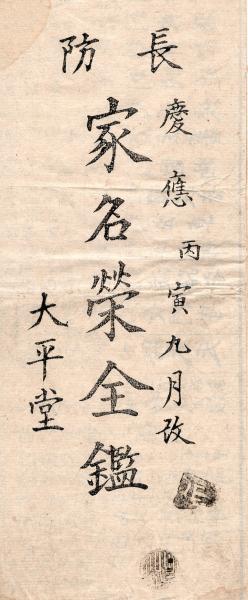 長防
慶應丙寅九月改
家名榮全鑑
大平堂